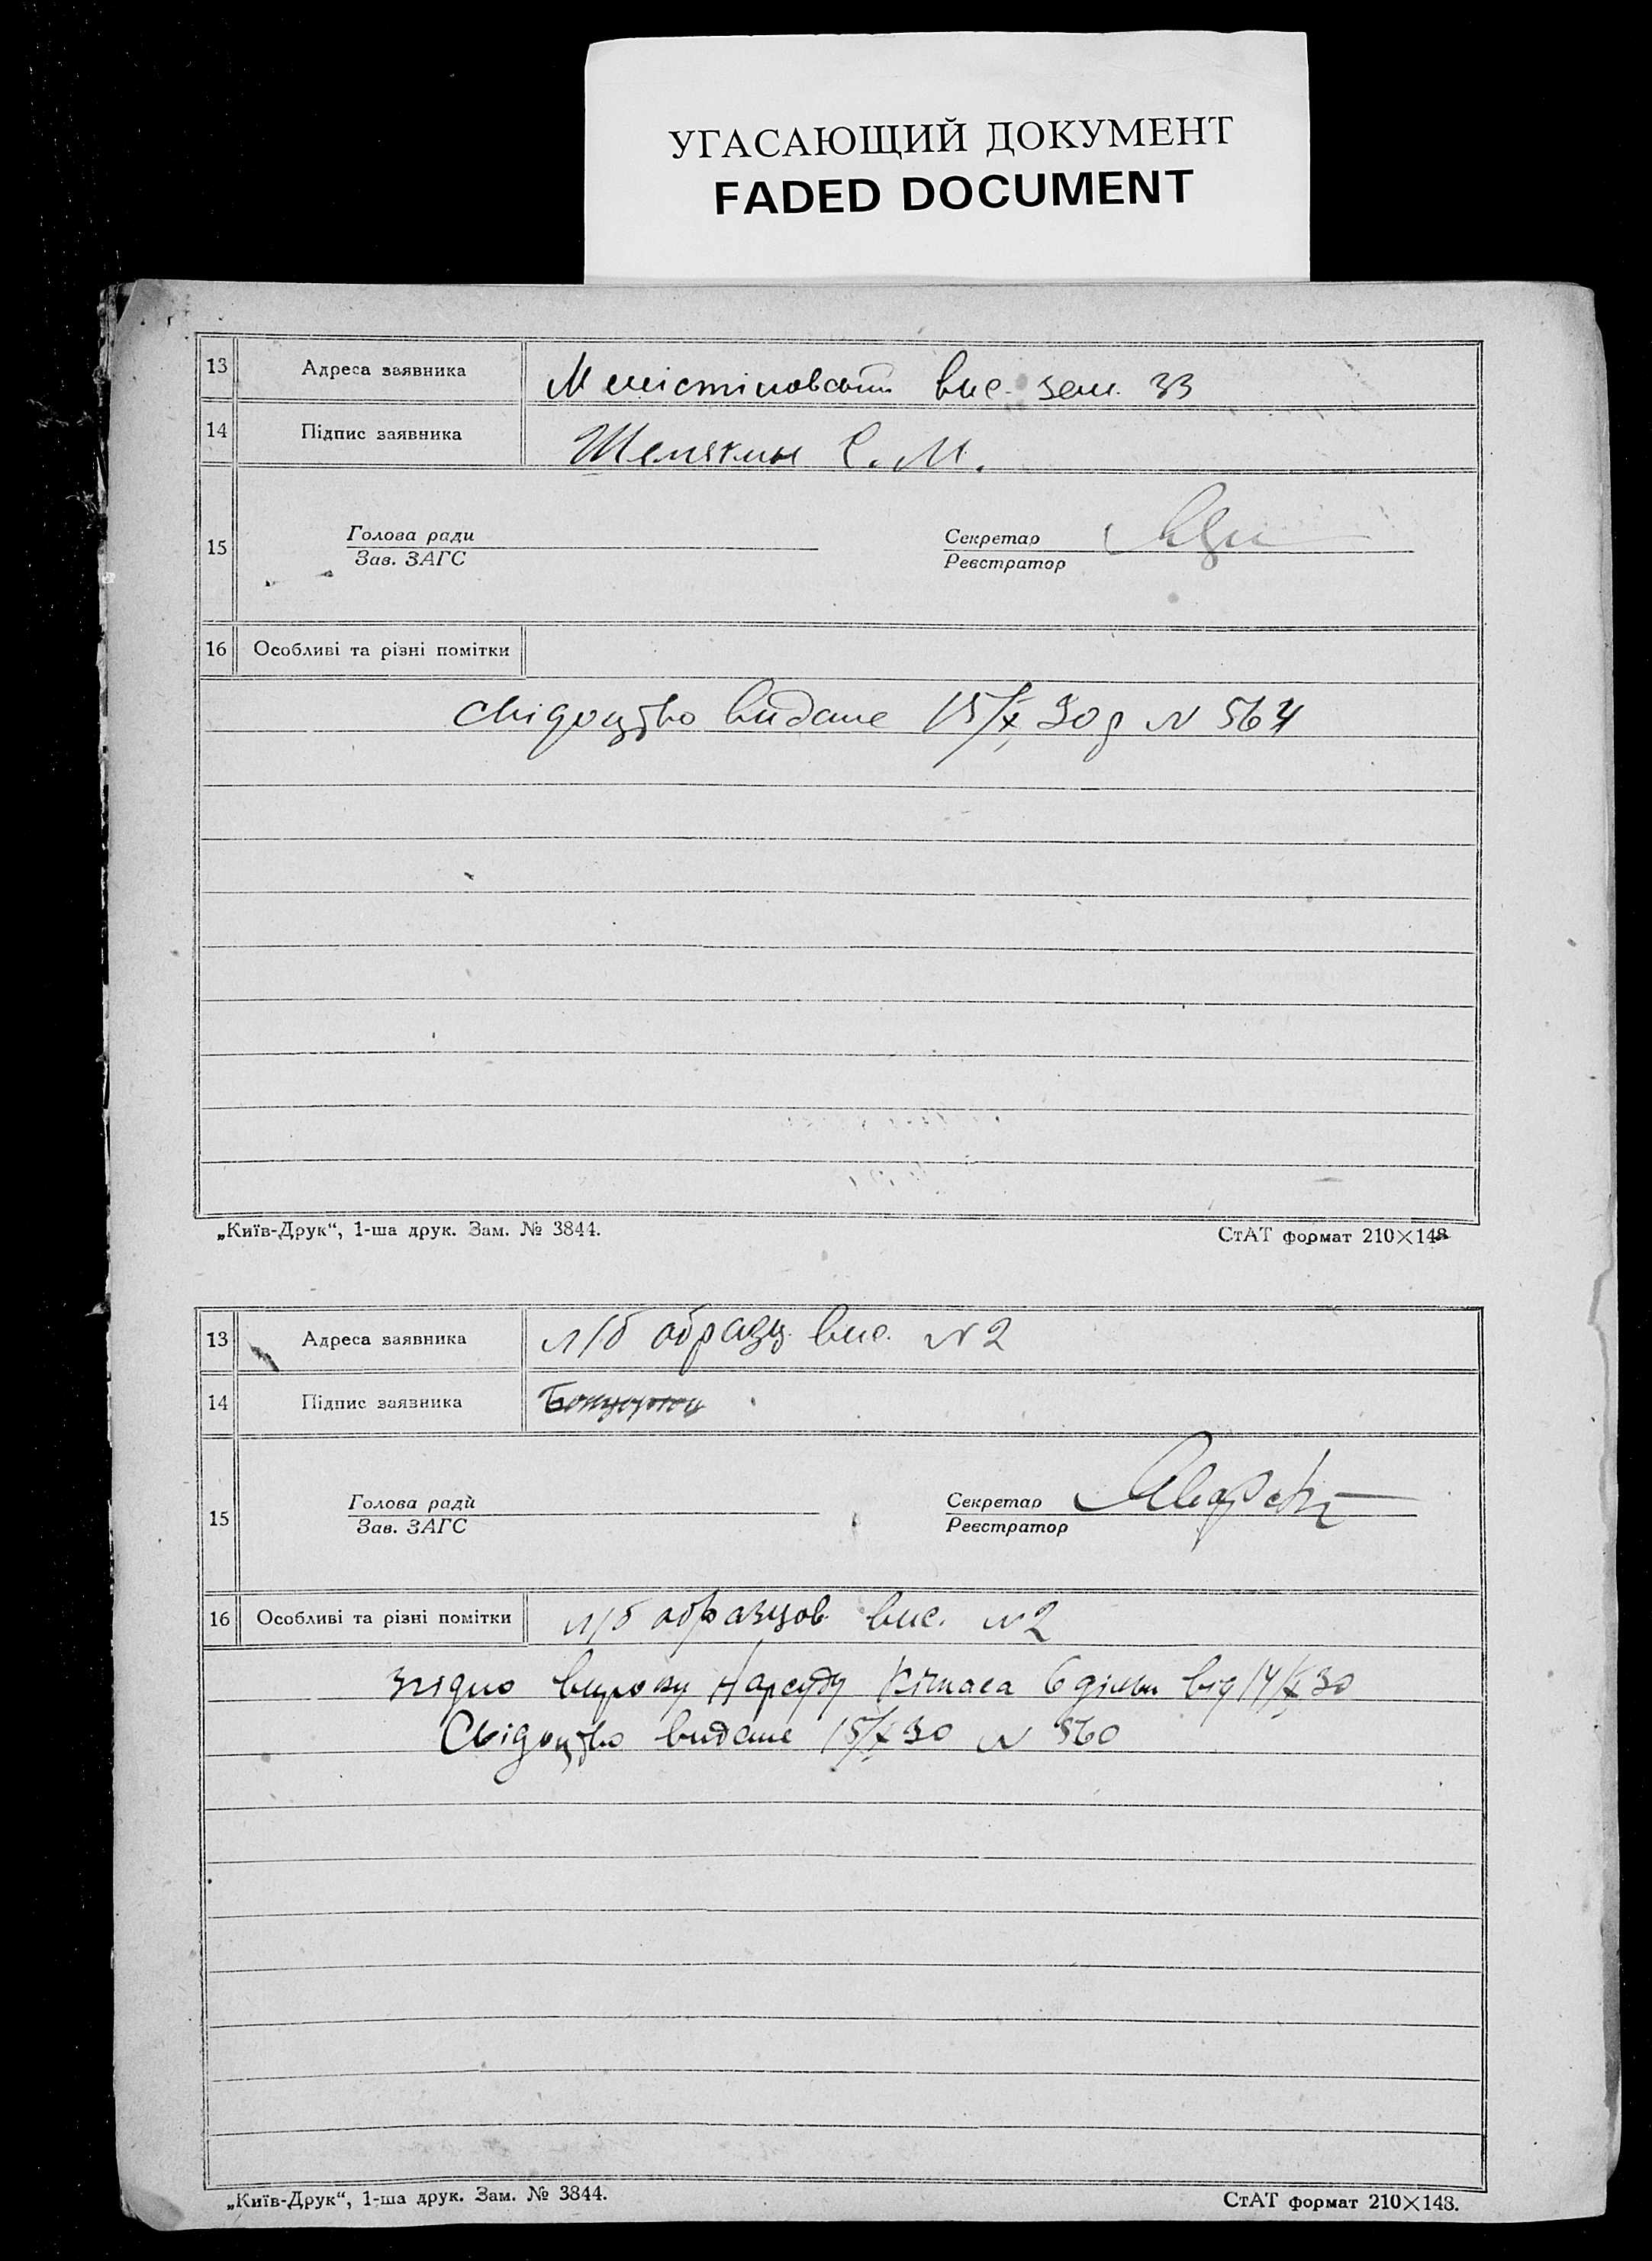 УГАСАЮЩИЙ ДОКУМЕНТ
FADED DOCUMENT
13 Адреса заявника вис. зем. 33
14 Підпис заявника Шемякин С. М.
15 Голова ради Секретар
Зав. ЗАГС Реєстратор
16 Особливі та різні помітки
свідоцтво видане 15/X 30 р N 564
„Київ-Друк“, 1-ша друк. Зам. № 3844. СтАТ формат 210×148
13 Адреса заявника л/б образц. вис. N 2
14 Підпис заявника
15 Голова ради Секретар
Зав. ЗАГС Реєстратор
16 Особливі та різні помітки л/б образцов. вис. N 2
Згідно вироку Нарсуду 6 дільн від 14/X 30
Свідоцтво видане 15/X 30 N 560
„Київ-Друк“, 1-ша друк. Зам. № 3844. СтАТ формат 210×148.